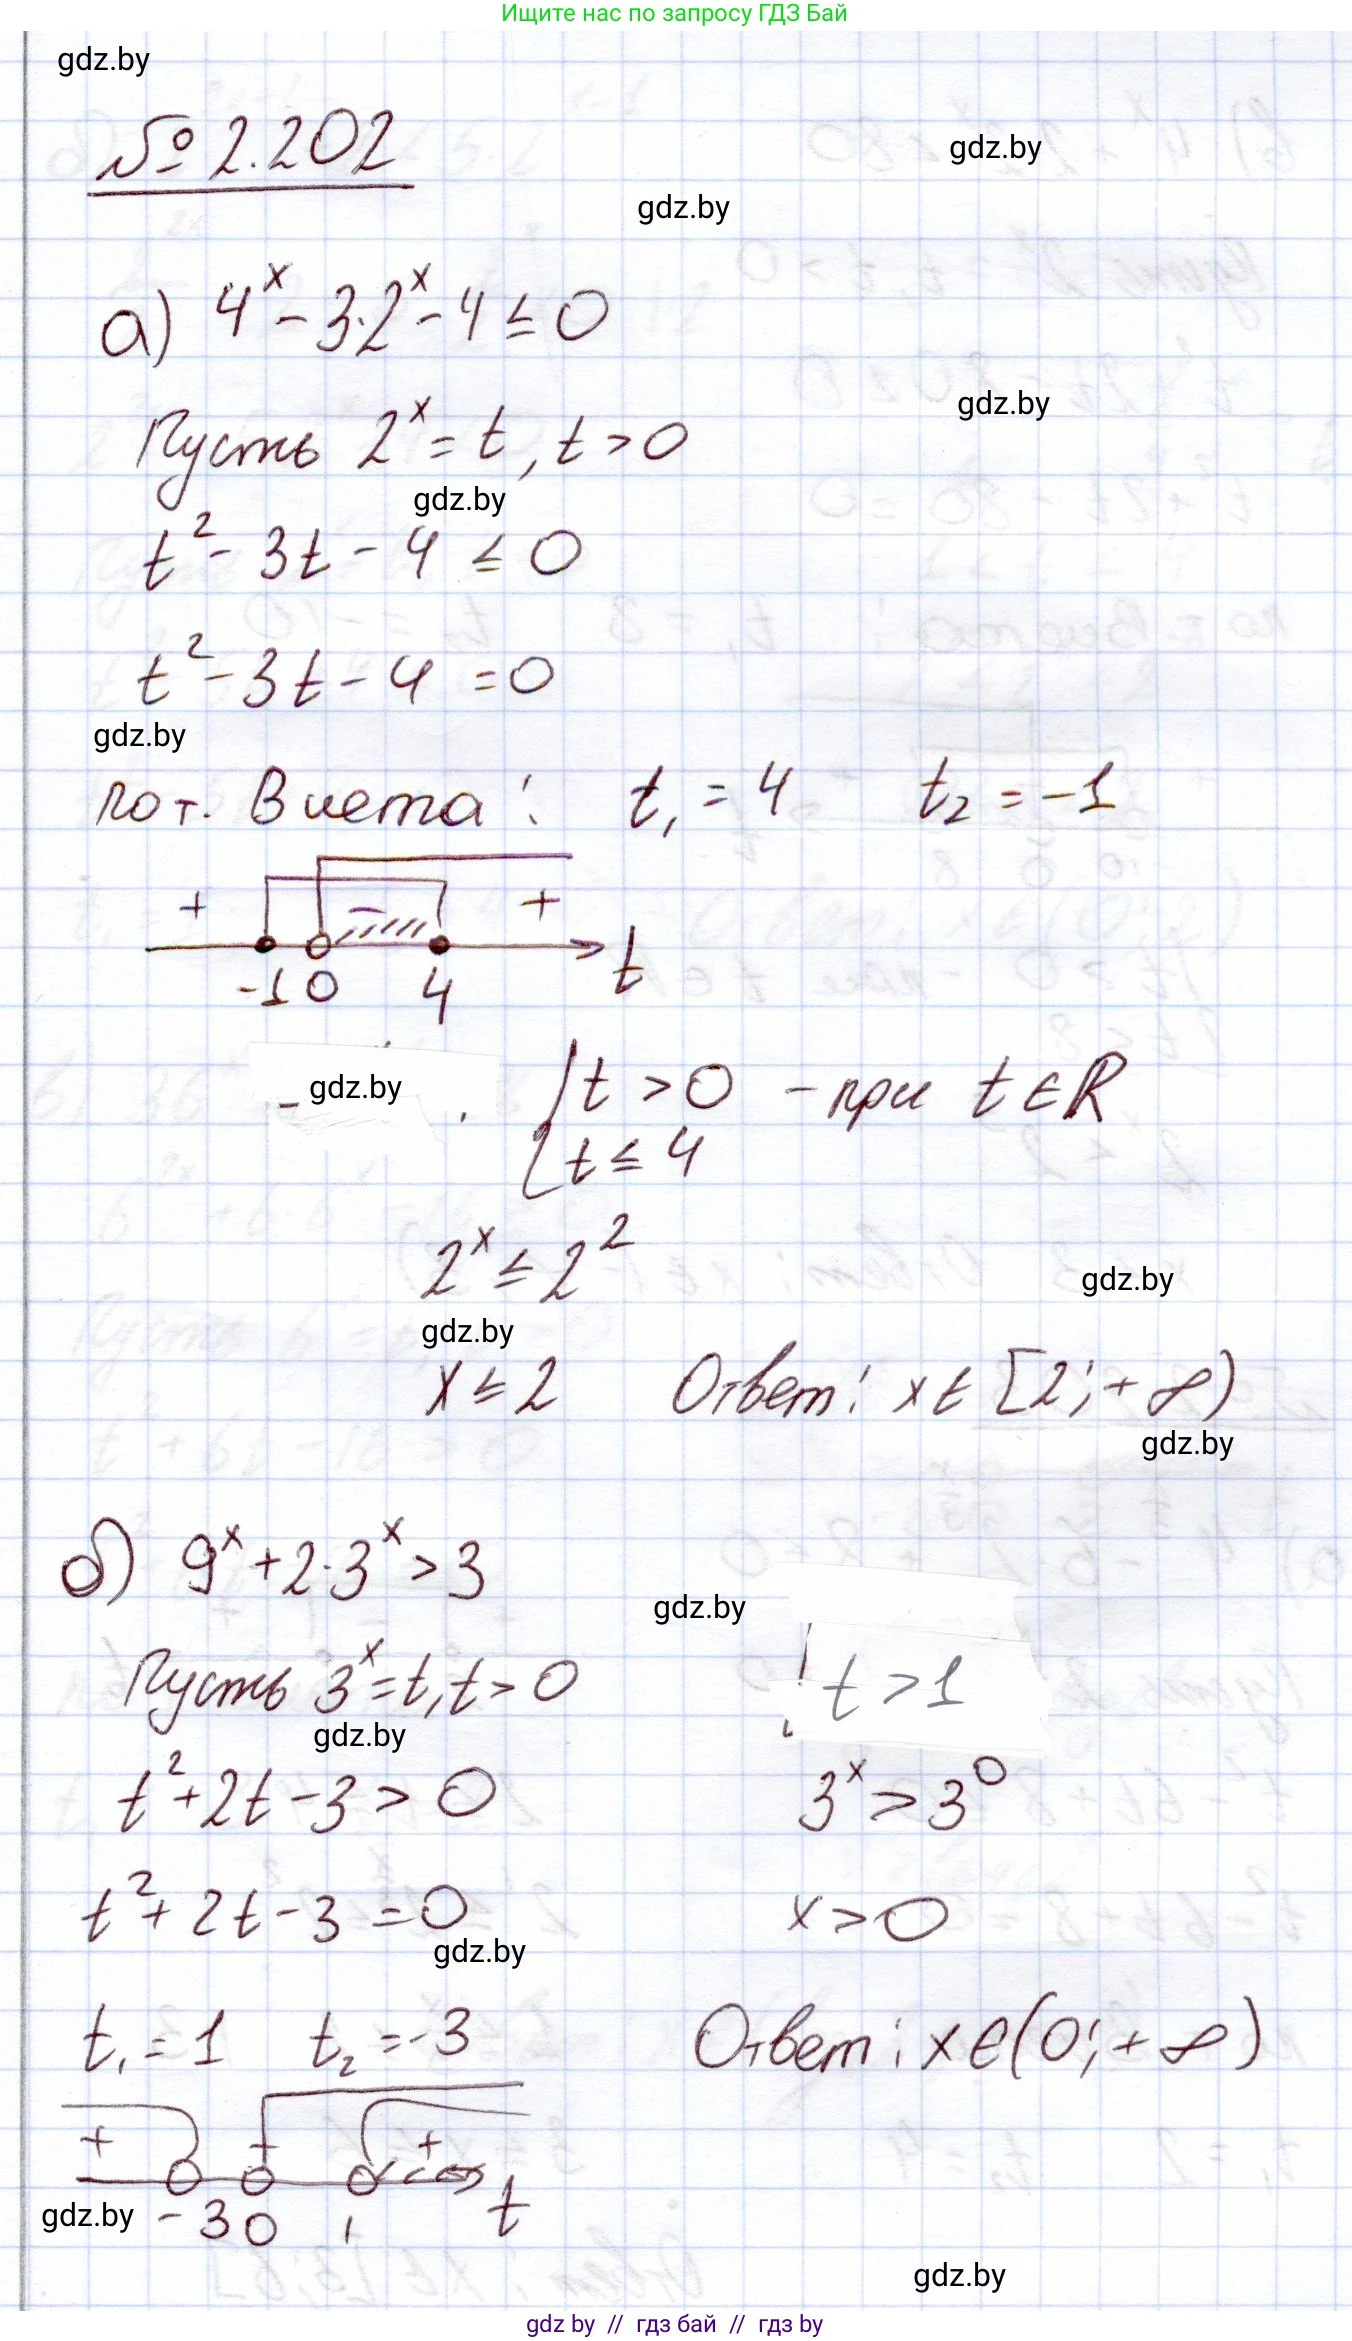 Ищите нас по запросу ГДЗ Бай
gdz.by
№ 2.202
gdz.by
gdz.by
а) 4^x - 3·2^x - 4 ≤ 0
gdz.by
Пусть 2^x = t, t > 0
gdz.by
t² - 3t - 4 ≤ 0
t² - 3t - 4 = 0
gdz.by
по т. Виета: t₁ = 4 t₂ = -1
+ - +
-1 0 4 t
gdz.by
{ t > 0 - при t ∈ R
{ t ≤ 4
2^x ≤ 2²
gdz.by
gdz.by
x ≤ 2 Ответ: x ∈ [2; +∞)
gdz.by
б) 9^x + 2·3^x > 3
gdz.by
Пусть 3^x = t, t > 0
gdz.by
t² + 2t - 3 > 0
t² + 2t - 3 = 0
gdz.by
t₁ = 1 t₂ = -3
+ - +
-3 0 1 t
gdz.by
t > 1
3^x > 3^0
x > 0
Ответ: x ∈ (0; +∞)
gdz.by
gdz by // гдз бай // гдз by